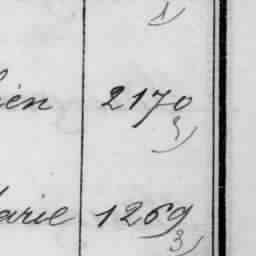 1)
ien 2170
3)
arie 1269
3)